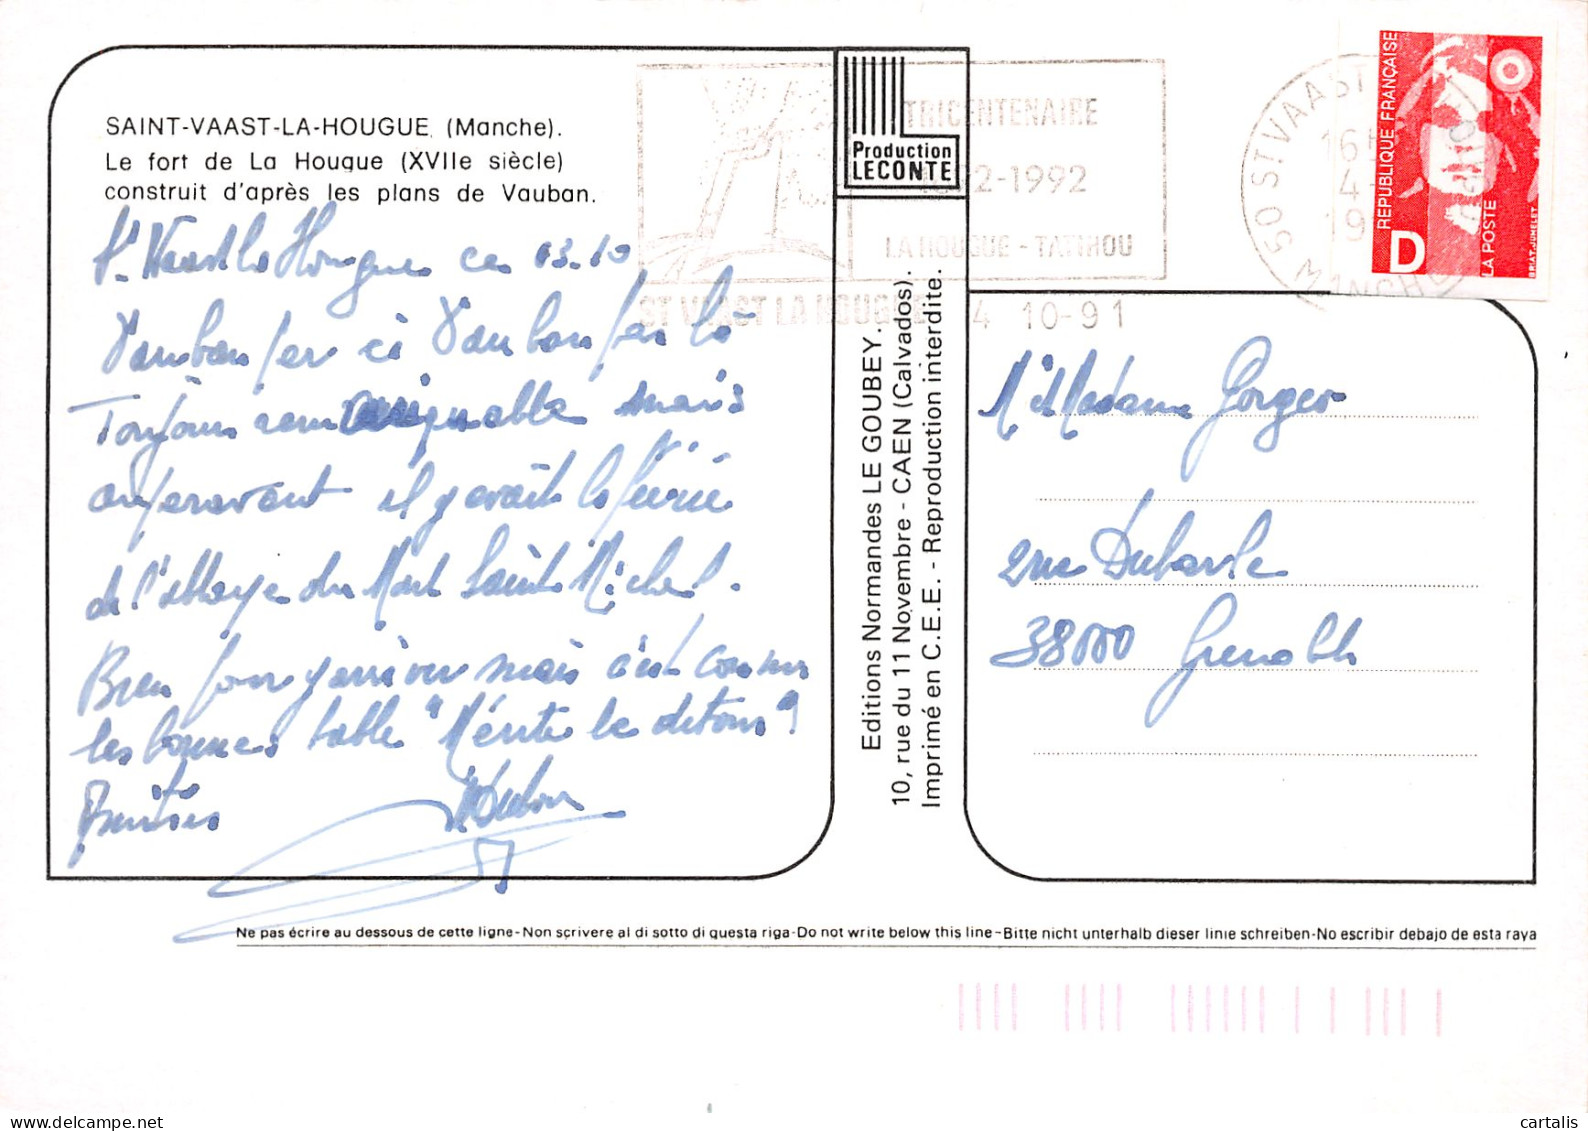 SAINT-VAAST-LA-HOUGUE (Manche).
Le fort de La Hougue (XVIIe siècle)
construit d'après les plans de Vauban.
St Vaast la Hougue ce 03.10
Vauban par ci Vauban par là
Toujours remarquable mais
auparavant il y avait la féerie
de l'abbaye du Mont Saint Michel.
Bien pour y arriver mais c'est comme
les bonnes table "Mérite le détour"
Amitiés
Production
LECONTE
TRICENTENAIRE
1692-1992
LA HOUGUE - TATIHOU
ST VAAST LA HOUGUE 4 10-91
50 ST VAAST
MANCHE
REPUBLIQUE FRANÇAISE
D
LA POSTE
BRIAT.JUMELET
Editions Normandes LE GOUBEY.
10, rue du 11 Novembre - CAEN (Calvados).
Imprimé en C.E.E. - Reproduction interdite.
M et Madame
2 rue
38000 Grenoble
Ne pas écrire au dessous de cette ligne-Non scrivere al di sotto di questa riga-Do not write below this line-Bitte nicht unterhalb dieser linie schreiben-No escribir debajo de esta raya
cartalis